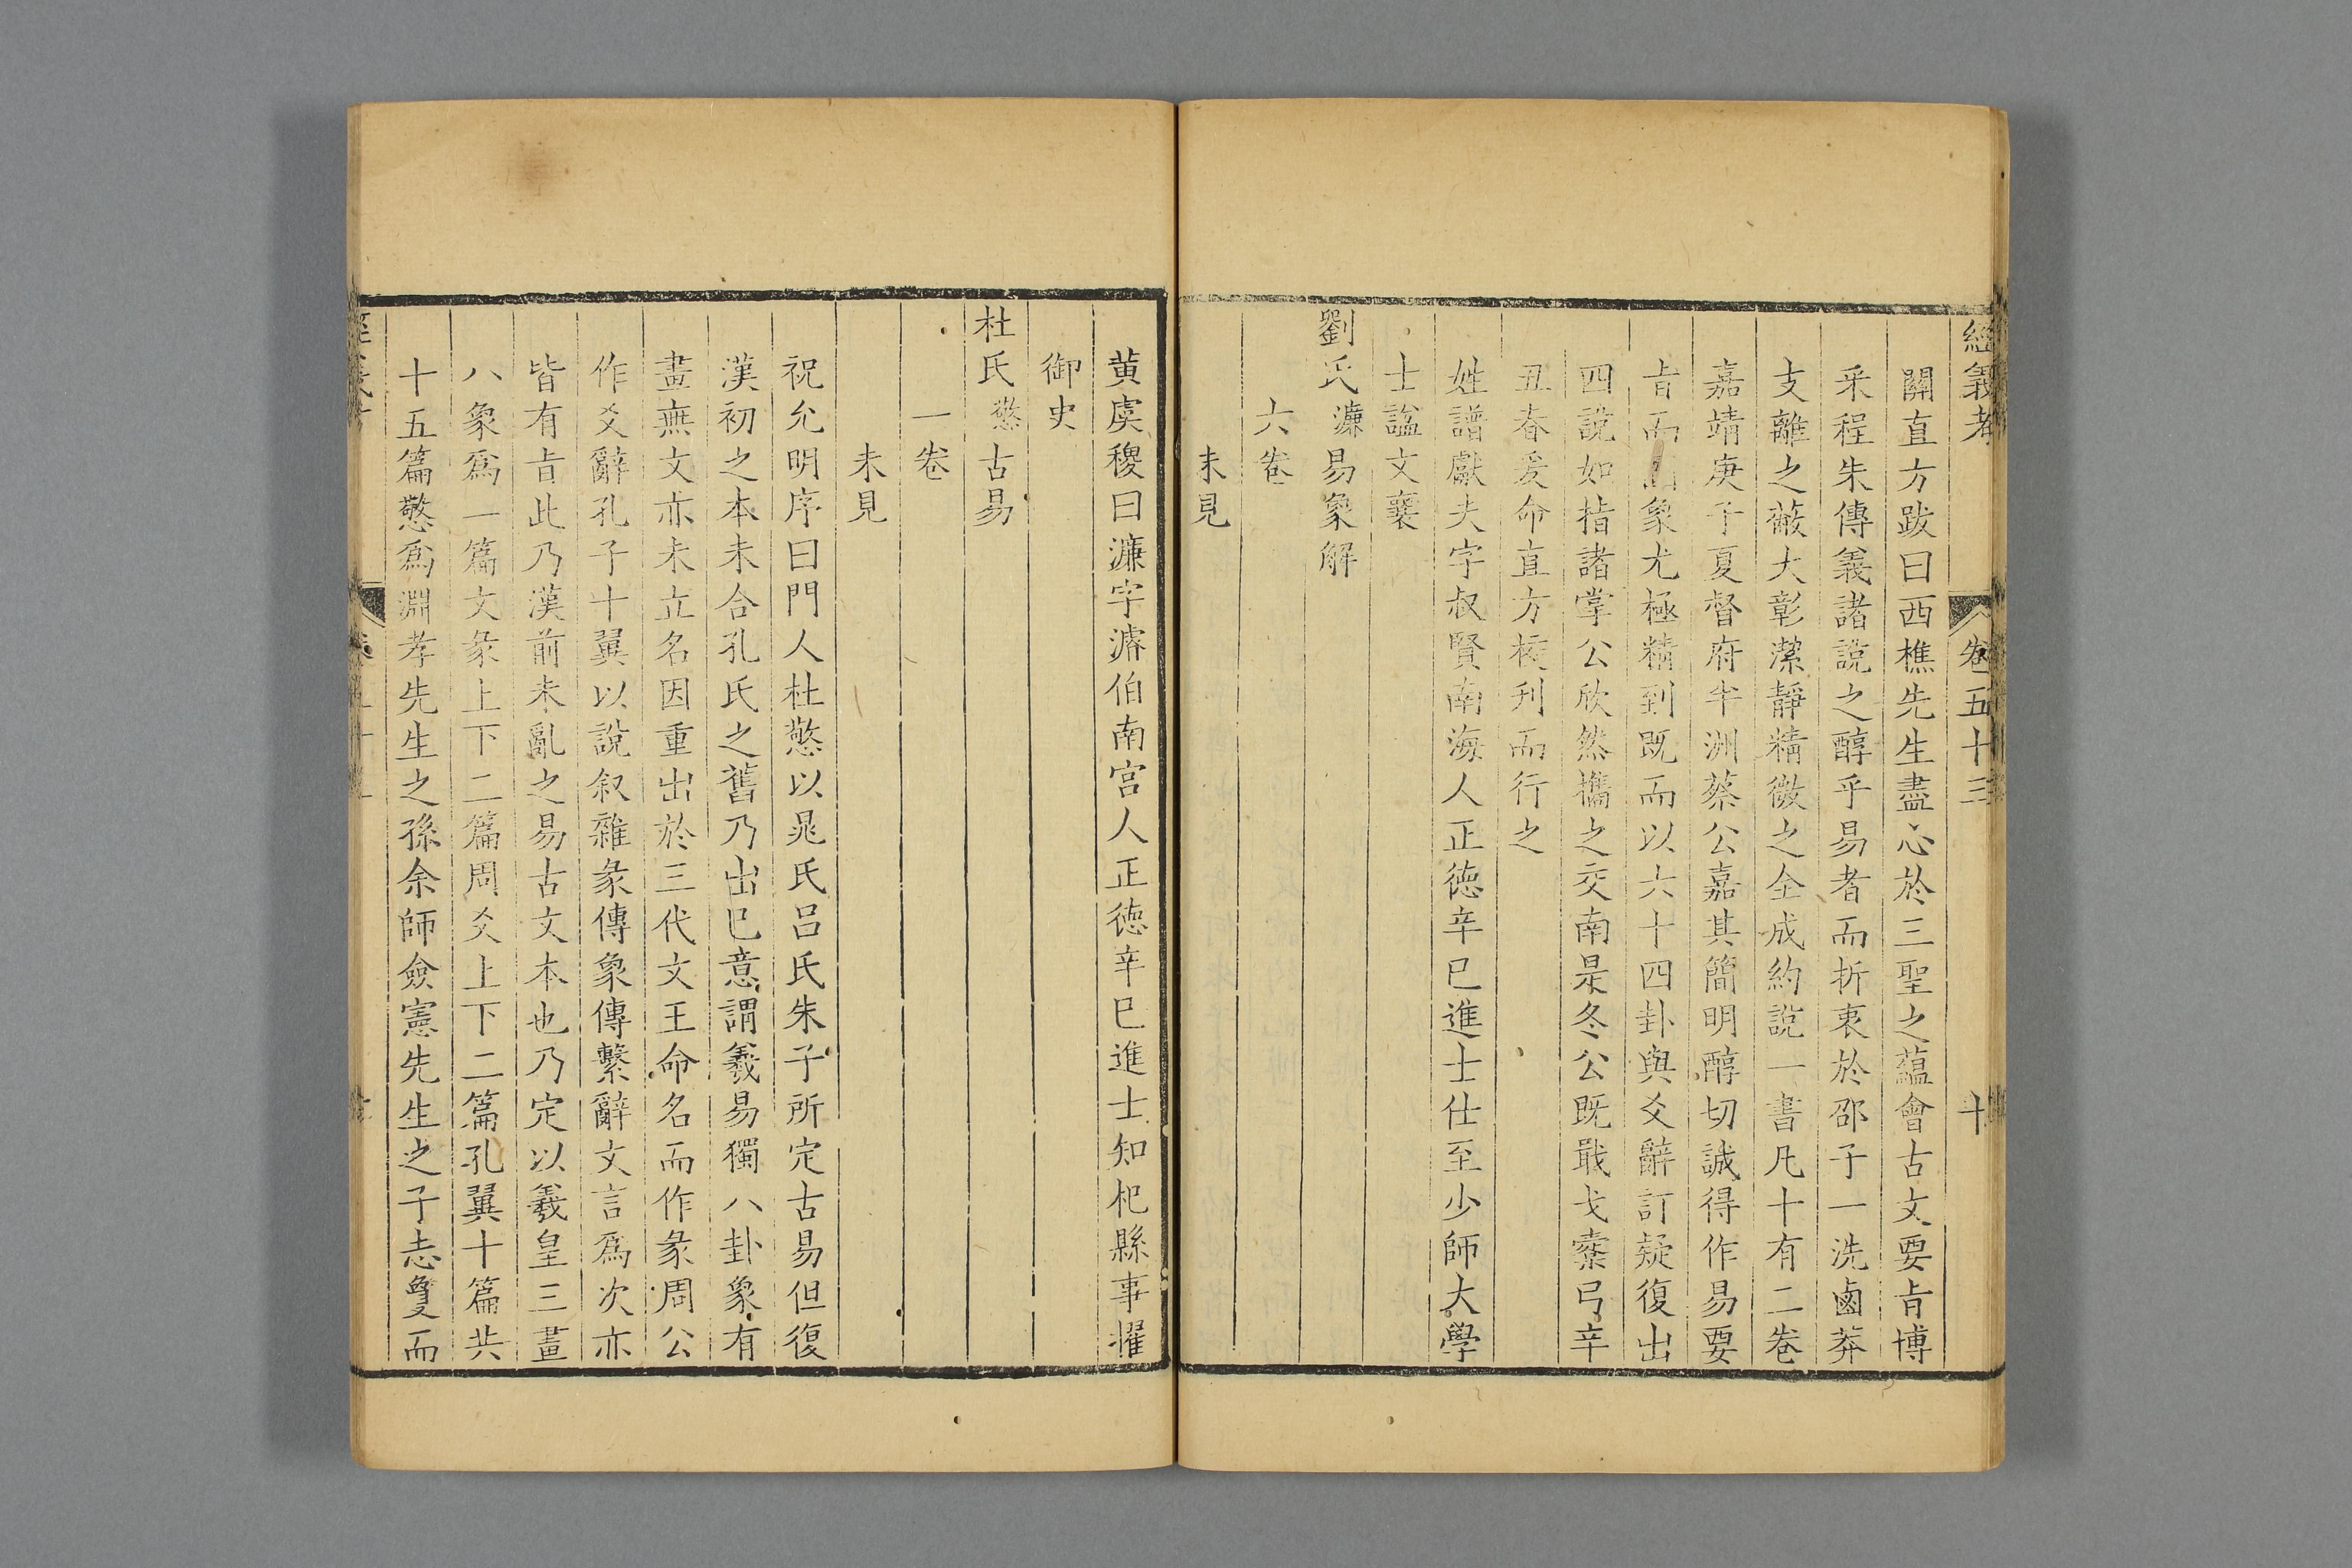 經義考 卷五十三 十
關直方跋曰西樵先生盡心於三聖之蘊會古文要旨博
采程朱傳義諸說之醇乎易者而折衷於邵子一洗鹵莽
支離之蔽大彰潔靜精微之全成約說一書凡十有二卷
嘉靖庚子夏督府半洲蔡公嘉其簡明醇切誠得作易要
旨而象尤極精到既而以六十四卦與爻辭訂疑復出
四說如指諸掌公欣然攜之交南是冬公既戢戈櫜弓辛
丑春爰命直方梓刋而行之
姓譜獻夫字叔賢南海人正德辛巳進士仕至少師大學
士謚文襄
劉氏濂易象解
六卷
未見
黃虞稷曰濂字濬伯南宮人正德辛巳進士知杞縣事擢
御史
杜氏憼古易
一卷
未見
祝允明序曰門人杜憼以晁氏呂氏朱子所定古易但復
漢初之本未合孔氏之舊乃出巳意謂羲易獨八卦象有
畫無文亦未立名因重出於三代文王命名而作彖周公
作爻辭孔子十翼以說叙雜彖傳象傳繫辭文言爲次亦
皆有旨此乃漢前未亂之易古文本也乃定以羲皇三畫
八象爲一篇文彖上下二篇周爻上下二篇孔翼十篇共
十五篇憼爲淵孝先生之孫余師僉憲先生之子志雙而